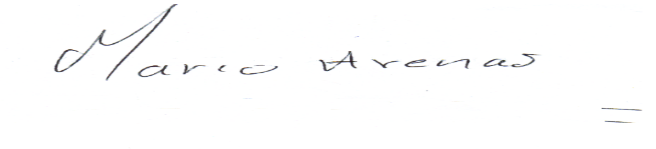 Mario Arenas
=